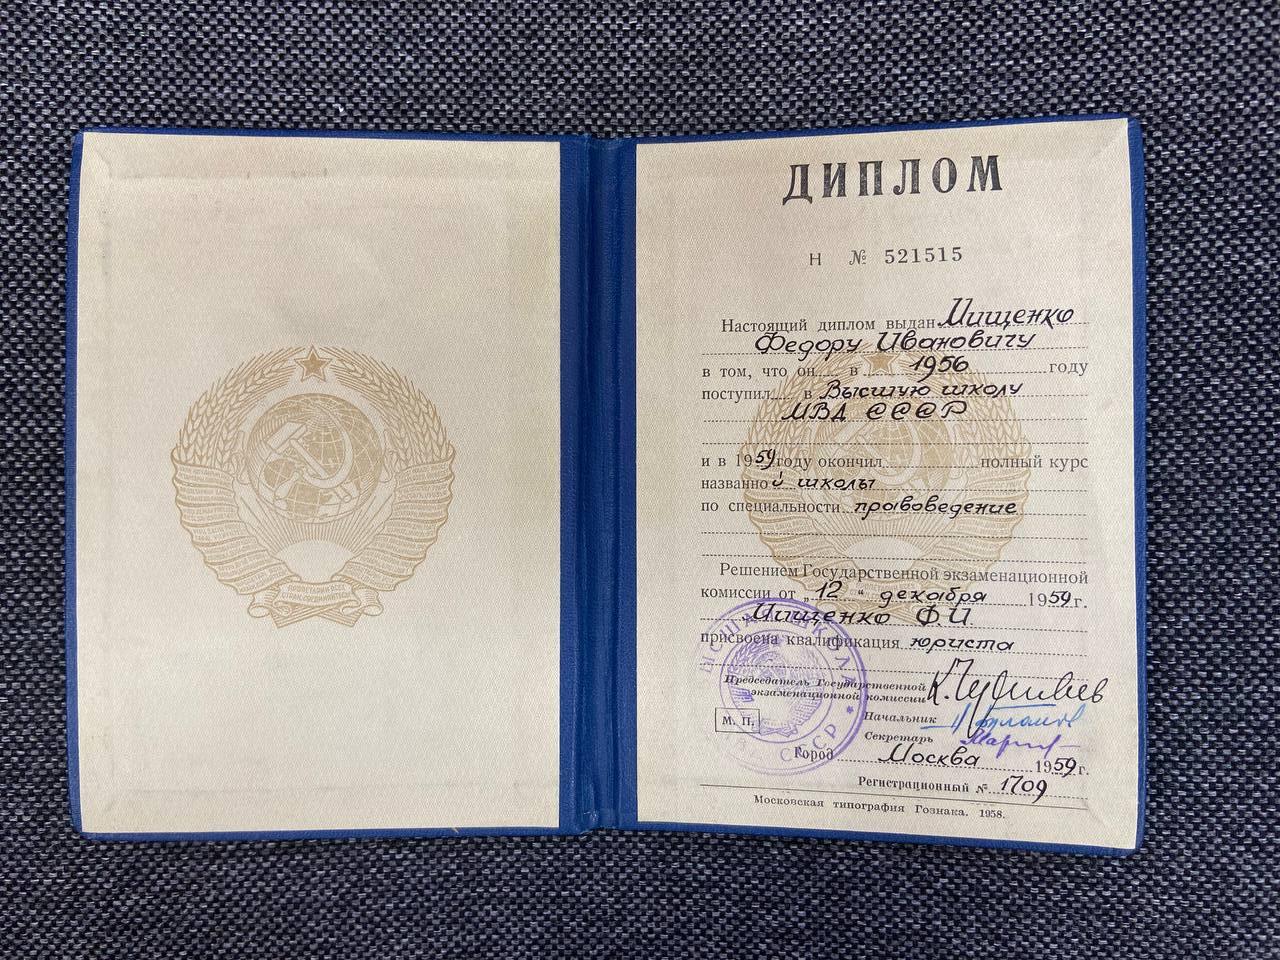 ДИПЛОМ
Н № 521515
Настоящий диплом выдан Мищенко
Федору Ивановичу
в том, что он в 1956 году
поступил в Высшую школу
МВД СССР
и в 1959 году окончил полный курс
названной школы
по специальности правоведение
Решением Государственной экзаменационной
комиссии от „12“ декабря 1959 г.
Мищенко Ф.И.
присвоена квалификация юриста
Председатель Государственной
экзаменационной комиссии
Начальник
М. П.
Секретарь
Город Москва 1959 г.
Регистрационный № 1709
Московская типография Гознака. 1958.
ВЫСШАЯ ШКОЛА * МВД СССР
ПРОЛЕТАРИИ ВСЕХ
СТРАН, СОЕДИНЯЙТЕСЬ!